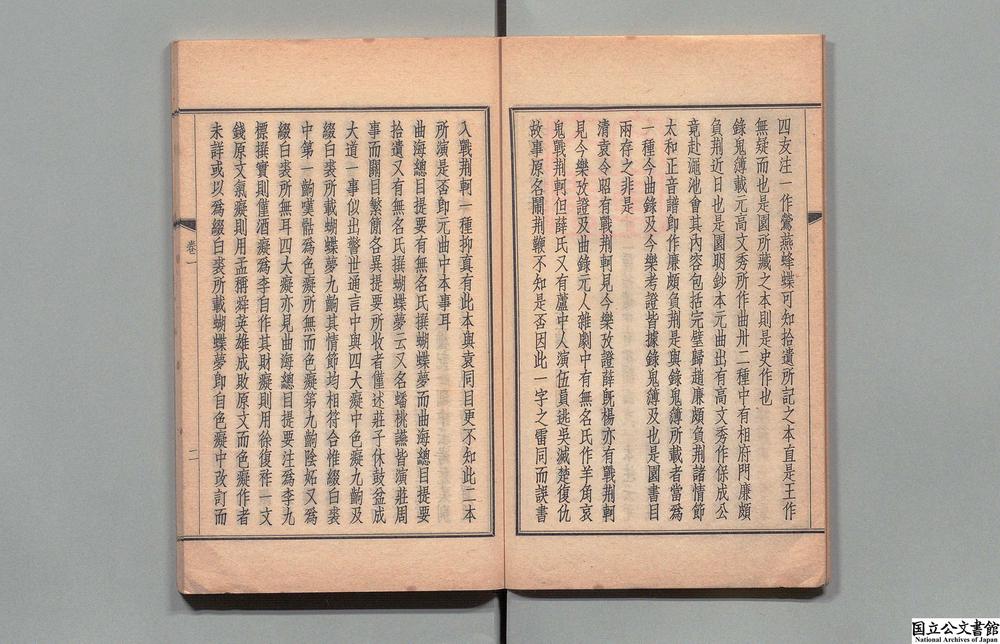 四友注一作鶯燕蜂蝶可知拾遺所記之本直是王作
無疑而也是園所藏之本則是史作也
錄鬼簿載元高文秀所作曲卅二種中有相府門廉頗
負荆近日也是園明鈔本元曲出有高文秀作保成公
竟赴澠池會其內容包括完璧歸趙廉頗負荆諸情節
太和正音譜卽作廉頗負荆是與錄鬼簿所載者當爲
一種今曲錄及今樂考證皆據錄鬼簿及也是園書目
兩存之非是
清袁令昭有戰荆軻見今樂攷證薛旣楊亦有戰荆軻
見今樂攷證及曲錄元人雜劇中有無名氏作羊角哀
鬼戰荆軻但薛氏又有蘆中人演伍員逃吳滅楚復仇
故事原名鬭荆鞭不知是否因此一字之雷同而誤書
入戰荆軻一種抑眞有此本與袁同目更不知此二本
所演是否卽元曲中本事耳
曲海總目提要有無名氏撰蝴蝶夢而曲海總目提要
拾遺又有無名氏撰蝴蝶夢云又名蟠桃讌皆演莊周
事而關目繁簡各異提要所收者僅述莊子休鼓盆成
大道一事似出警世通言中與四大癡中色癡九齣及
綴白裘所載蝴蝶夢九齣其情節均相符合惟綴白裘
中第一齣嘆骷爲色癡所無而色癡第九齣陰妬又爲
綴白裘所無耳四大癡亦見曲海總目提要注爲李九
標撰實則僅酒癡爲李自作其財癡則用徐復祚一文
錢原文氣癡則用孟稱舜英雄成敗原文而色癡作者
未詳或以爲綴白裘所載蝴蝶夢卽自色癡中改訂而
卷一
二
国立公文書館
National Archives of Japan